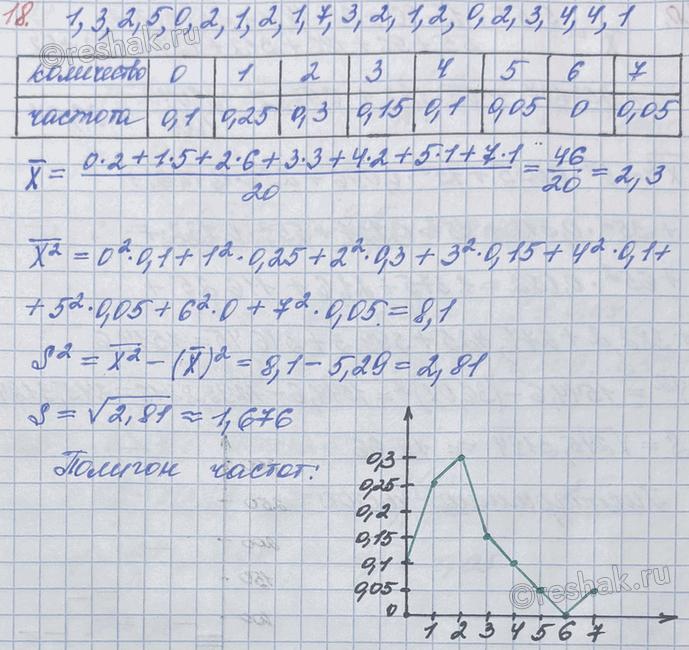 18. 1,3,2,5,0,2,1,2,1,7,3,2,1,2,0,2,3,4,4,1
количество 0 1 2 3 4 5 6 7
частота 0,1 0,25 0,3 0,15 0,1 0,05 0 0,05
X̅ = (0·2+1·5+2·6+3·3+4·2+5·1+7·1)/20 = 46/20 = 2,3
X̅² = 0²·0,1+1²·0,25+2²·0,3+3²·0,15+4²·0,1+
+5²·0,05+6²·0+7²·0,05=8,1
S² = X̅² − (X̅)² = 8,1 − 5,29 = 2,81
S = √2,81 ≈ 1,676
Полигон частот:
0,3
0,25
0,2
0,15
0,1
0,05
0
1 2 3 4 5 6 7
©reshak.ru
©reshak.ru